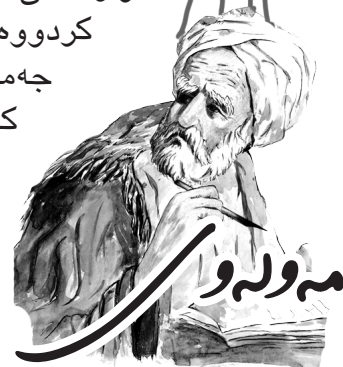 کردووە
جەم
ک
مەولەوی